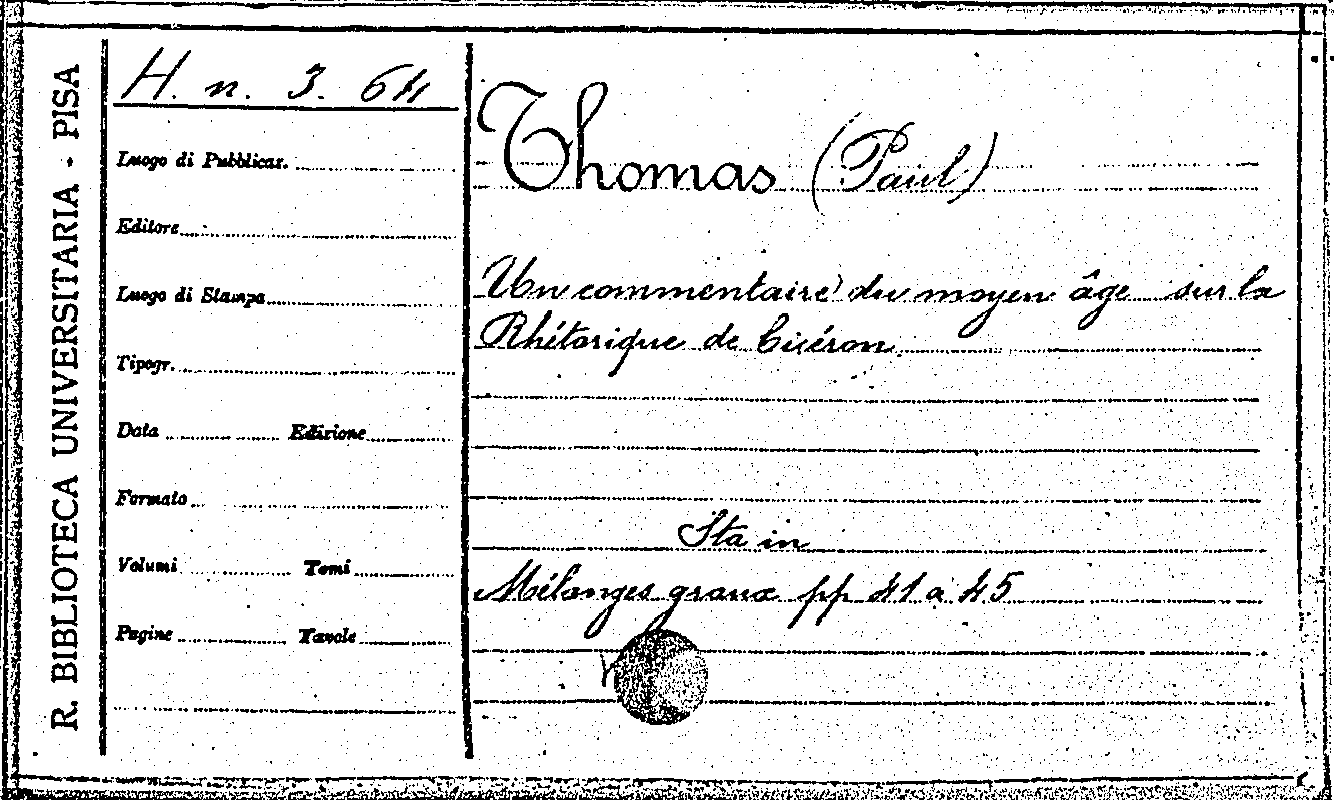 R. BIBLIOTECA UNIVERSITARIA - PISA
H. n. 3. 64
Luogo di Pubblicaz.
Editore
Luogo di Stampa
Tipogr.
Data Edizione
Formato
Volumi Tomi
Pagine Tavole
Thomas (Paul)
Un commentaire du moyen âge sur la
Rhétorique de Cicéron
Sta in
Mélanges graux pp 41 a 45